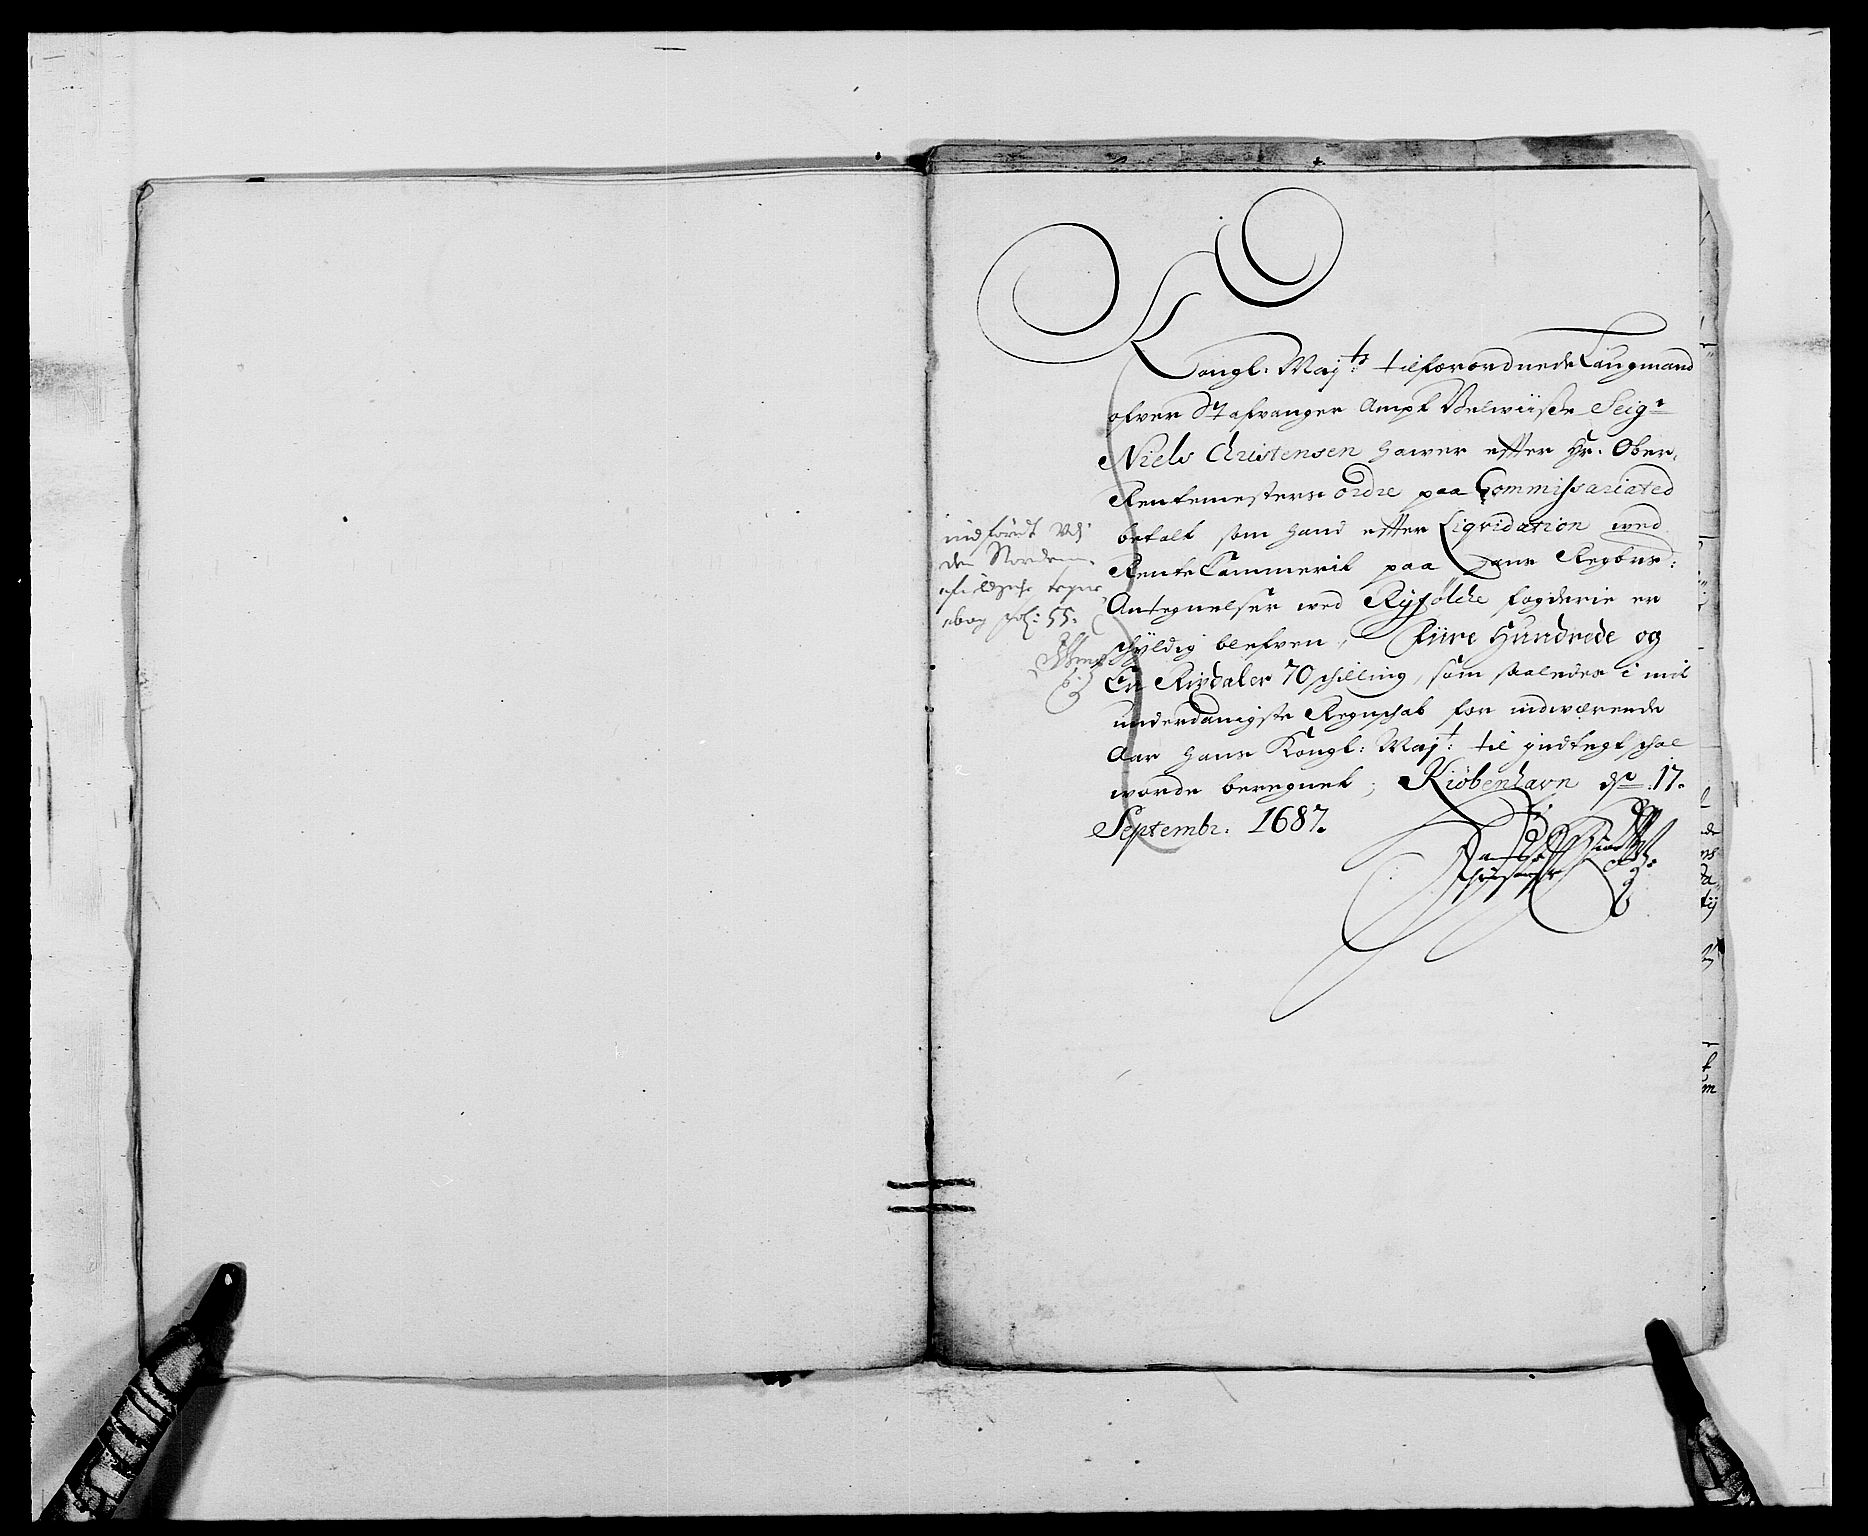 Kongl: Maj.ts tilforordnede Laugmand
ofver Stafvanger Ampt Velwiisße Seig.r
Niels Christensen hawer effter Hr. Ober-
Rentemesters ordre paa Commissariated
betalt som hand effter Liqvidation wed
Rente Cammerit paa hans Regbns:
Antegnelser wed Ryfölche fogderie er
schyldig blefven, Fiire Hundrede og
En Rixdaler 70 schilling, som saaledes i mit
underdanigste Regnschab for indwærende
Aar hans Kongl: Maj.t: til indtegt schal
worde beregnet; Kiöbenhavn d. 17.
Septembr. 1687.
indfördt ved
den Norden-
fieldsche
bog fol: 55.